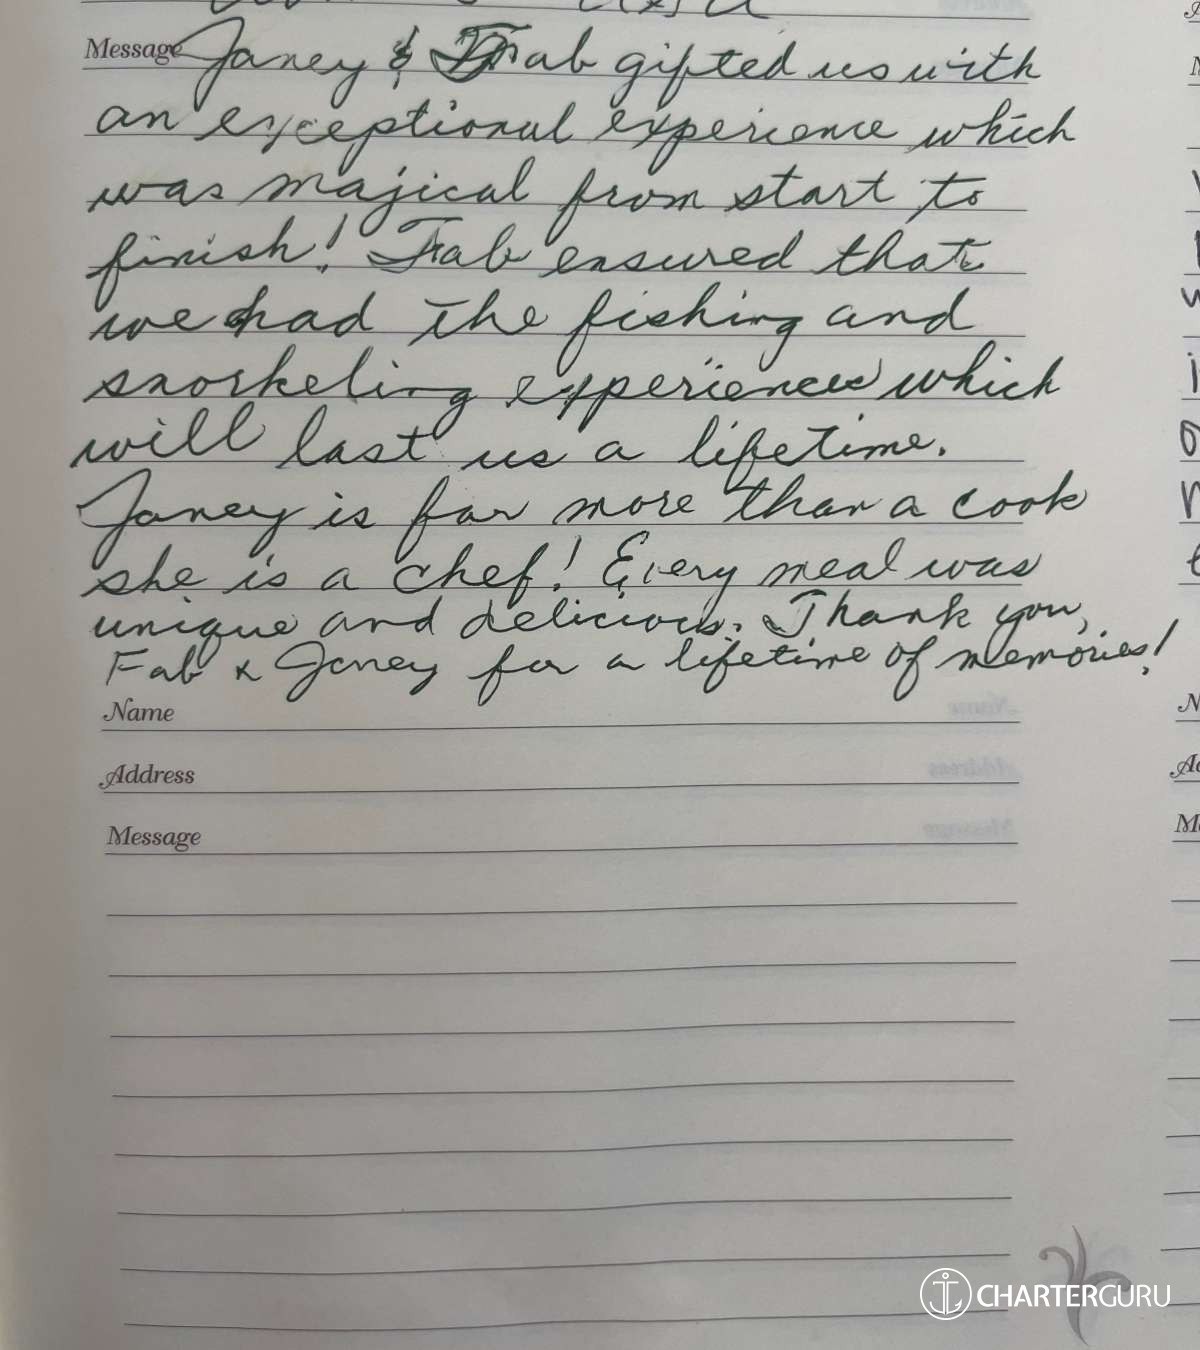 Message Janey & Fab gifted us with
an exceptional experience which
was majical from start to
finish! Fab ensured that
we had the fishing and
snorkeling experiences which
will last us a lifetime.
Janey is far more than a cook
she is a chef! Every meal was
unique and delicious. Thank you,
Fab & Janey for a lifetime of memories!
Name
Address
Message
CHARTERGURU